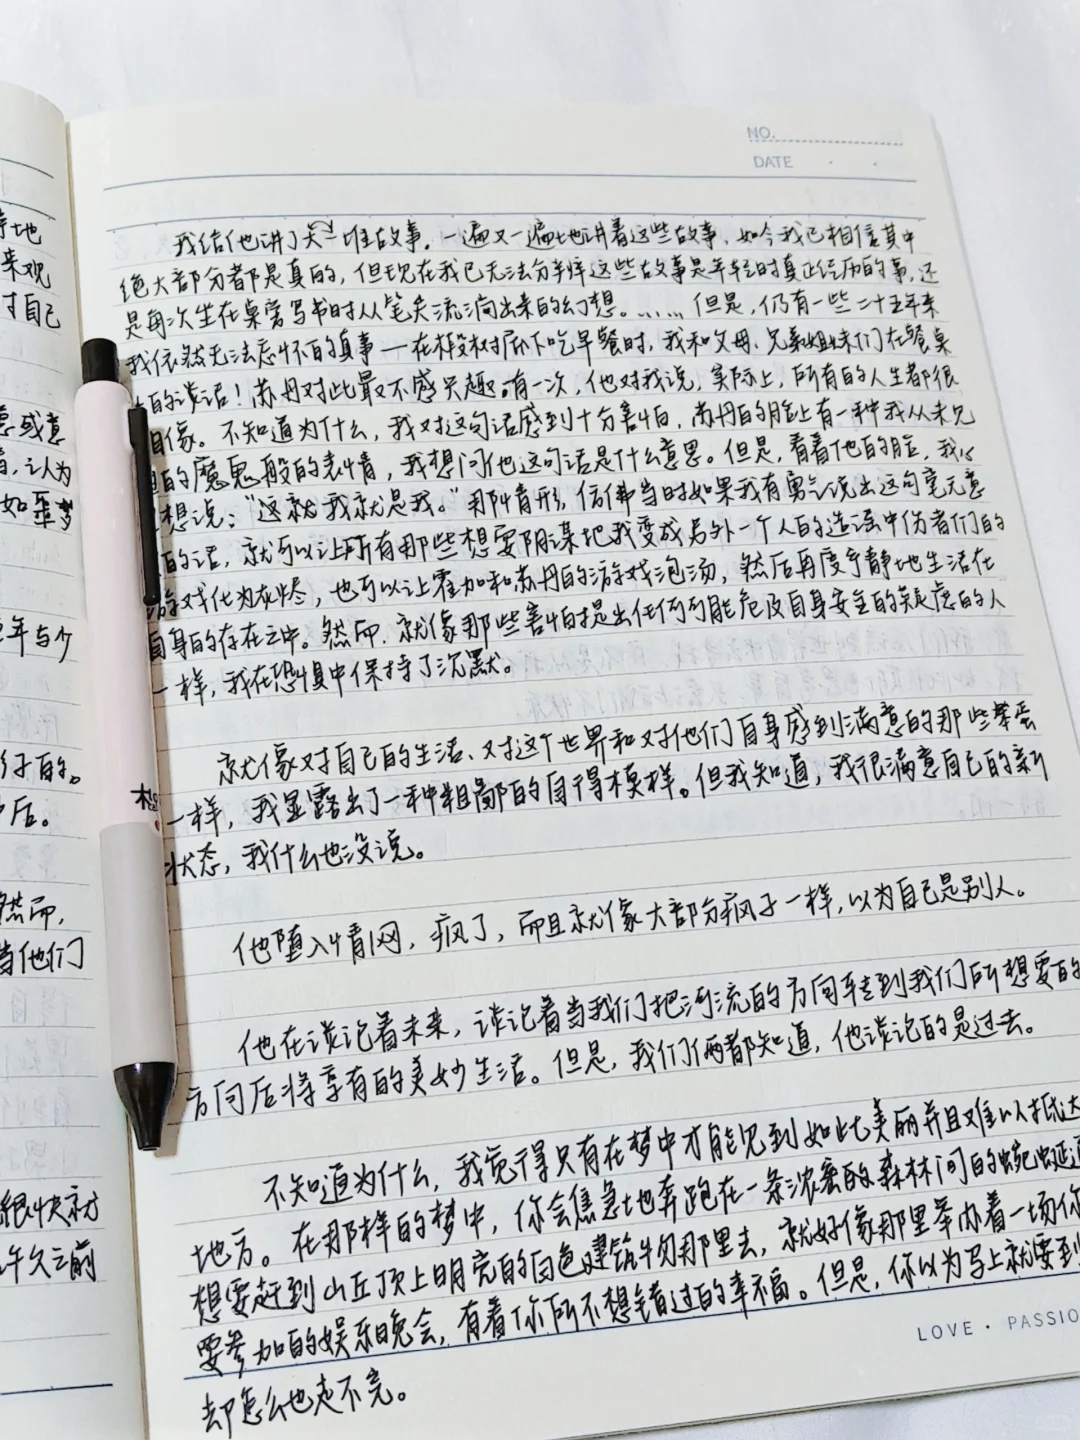 NO.
DATE
我给他讲了一堆故事,一遍又一遍地讲着这些故事,如今我已相信其中
绝大部分都是真的,但现在我已无法分辨这些故事是年轻时真正经历的事,还
是每次坐在桌旁写书时从笔尖流淌出来的幻想。…… 但是,仍有一些二十五年来
我依然无法忘怀的真事—在椴树底下吃早餐时,我和父母、兄弟姐妹们在餐桌
的谈话!苏丹对此最不感兴趣。有一次,他对我说,实际上,所有的人生都很
相像。不知道为什么,我对这句话感到十分害怕,苏丹的脸上有一种我从未见
的魔鬼般的表情,我想问他这句话是什么意思。但是,看着他的脸,我心
想说:“这就我就是我。”那情形,仿佛当时如果我有勇气说出这句毫无意
的话,就可以让所有那些想要阴谋地我变成另外一个人的造谣中伤者们的
游戏化为灰烬,也可以让霍加和苏丹的游戏泡汤,然后再度宁静地生活在
自身的存在之中。然而,就像那些害怕提出任何可能危及自身安全的疑虑的人
一样,我在恐惧中保持了沉默。
就像对自己的生活、对这个世界和对他们自身感到满意的那些笨蛋
一样,我显露出了一种粗鄙的自得模样。但我知道,我很满意自己的新
状态,我什么也没说。
他堕入情网,疯了,而且就像大部分疯子一样,以为自己是别人。
他在谈论着未来,谈论着当我们把河流的方向转到我们所想要的
方向后将享有的美妙生活。但是,我们俩都知道,他谈论的是过去。
不知道为什么,我觉得只有在梦中才能见到如此美丽并且难以抵达
地方。在那样的梦中,你会焦急地奔跑在一条浓密的森林间的蜿蜒道
想要赶到山丘顶上明亮的白色建筑物那里去,就好像那里举办着一场你
要参加的娱乐晚会,有着你所不想错过的幸福。但是,你以为马上就要到
却怎么也走不完。
LOVE · PASSIO
来观
对自己
意或意
认为
如噩梦
年与少
子的。
后。
然而,
当他们
很快就
午夜之前